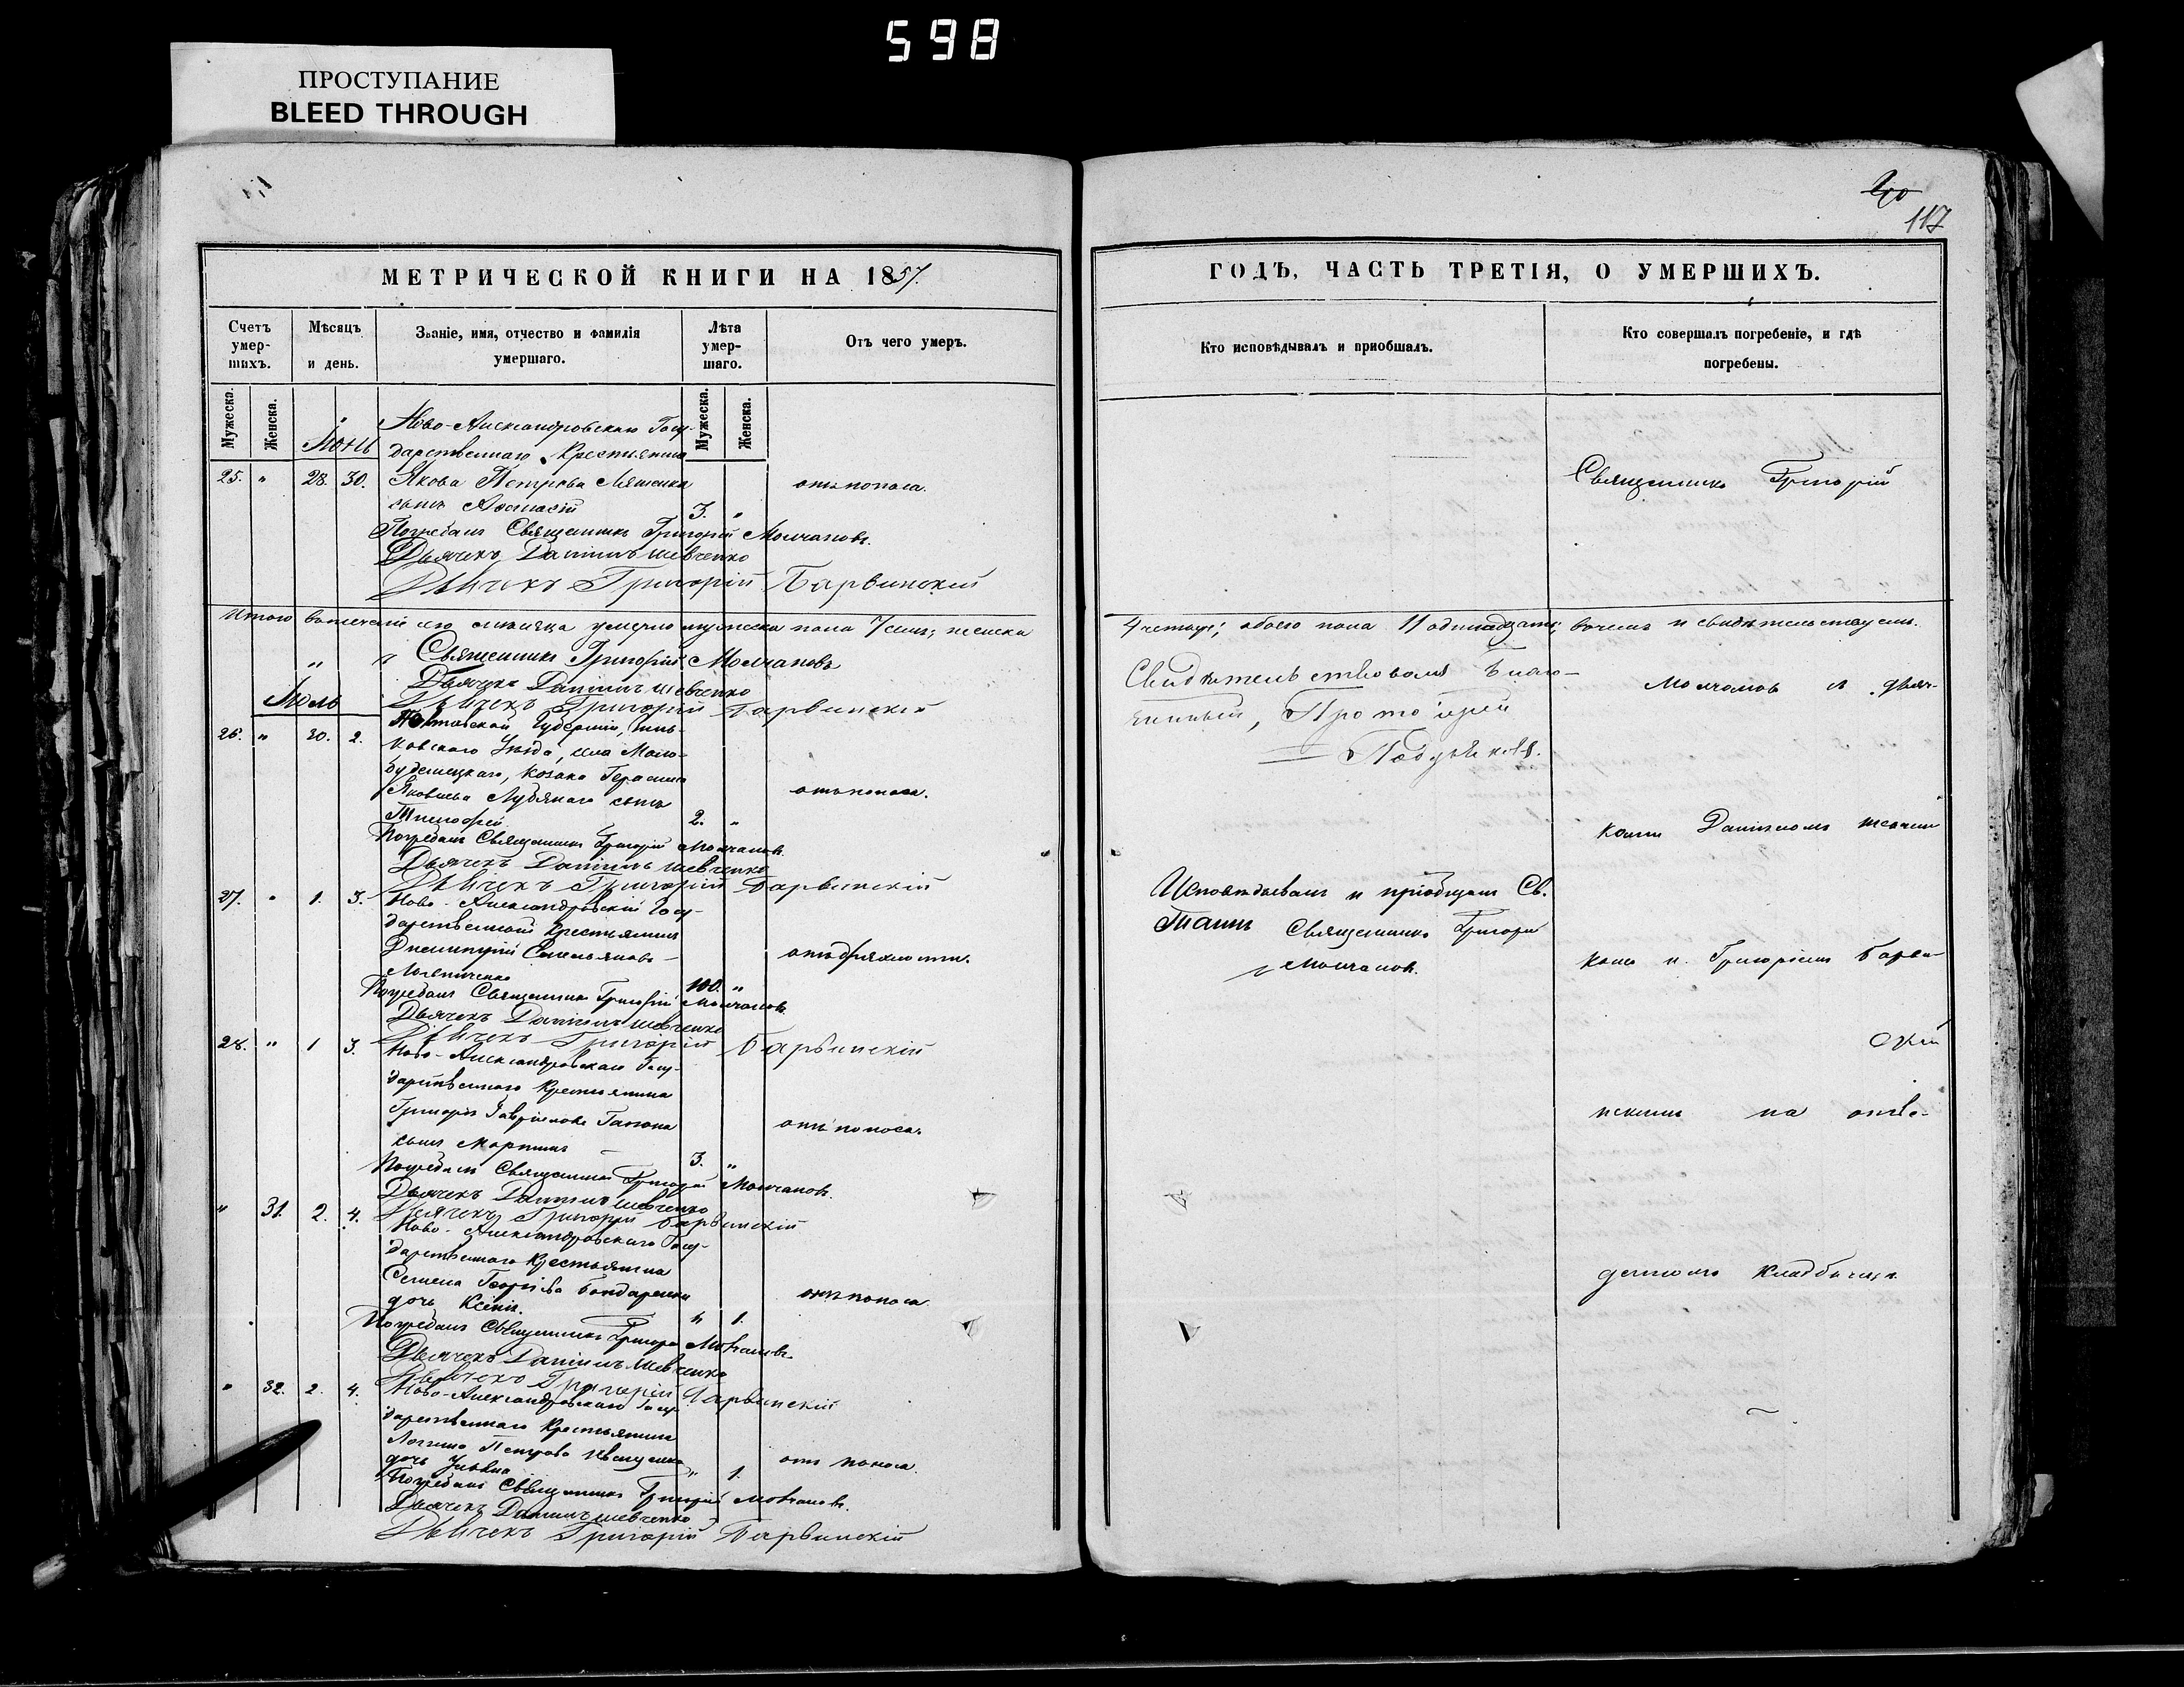 598
ПРОСТУПАНИЕ
BLEED THROUGH
117
МЕТРИЧЕСКОЙ КНИГИ НА 1857.
Счетъ умер-шихъ.
Мѣсяцъ и день.
Званіе, имя, отчество и фамилія умершаго.
Лѣта умер-шаго.
Отъ чего умеръ.
Мужеска.
Женска.
Мужеска.
Женска.
Ново-Александровскаго Госу-
Іюнь
дарственнаго Крестьянина
25. " 28. 30. Якова Петрова Ляшенка отъ поноса.
сынъ Афанасій 3. "
Погребалъ Священникъ Григорій Молчановъ.
Дьячекъ Даніилъ Шевченко
Дьячекъ Григорій Барвинскій
Итого въ теченіи сего мѣсяца умерло мужеска пола 7 семь; женска
" " Священникъ Григорій Молчановъ
Дьячекъ Даніилъ Шевченко
Іюль
Дьячекъ Григорій Барвинскій
Полтавской Губерніи, Зинь-
26. " 30. 2. ковскаго Уѣзда, села Мало-
будищецкаго, Козака Герасима
Яковлева сынъ отъ поноса.
Тимофей 2. "
Погребалъ Священникъ Григорій Молчановъ.
Дьячекъ Даніилъ Шевченко
Дьячекъ Григорій Барвинскій
27. " 1. 3. Ново-Александровскій Госу-
дарственный Крестьянинъ
Димитрій Емельяновъ отъ дряхлости.
100. "
Погребалъ Священникъ Григорій Молчановъ.
Дьячекъ Даніилъ Шевченко
Дьячекъ Григорій Барвинскій
28. " 1 3. Ново-Александровскаго Госу-
дарственнаго Крестьянина
Григорія Гавріилова отъ поноса.
сынъ Мартинъ 3. "
Погребалъ Священникъ Григорій Молчановъ.
Дьячекъ Даніилъ Шевченко
Дьячекъ Григорій Барвинскій
" 31. 2. 4. Ново-Александровскаго Госу-
дарственнаго Крестьянина
Семена Георгіева Бондаренка отъ поноса.
дочь Ксенія. " 1.
Погребалъ Священникъ Григорій Молчановъ.
Дьячекъ Даніилъ Шевченко
Дьячекъ Григорій Барвинскій
" 32. 2. 4. Ново-Александровскаго Госу-
дарственнаго Крестьянина
Логгина Петрова Иващенка отъ поноса.
дочь Ульяна " 1.
Погребалъ Священникъ Григорій Молчановъ.
Дьячекъ Даніилъ Шевченко
Дьячекъ Григорій Барвинскій
ГОДЪ, ЧАСТЬ ТРЕТІЯ, О УМЕРШИХЪ.
Кто исповѣдывалъ и пріобщалъ.
Кто совершалъ погребеніе, и гдѣ погребены.
Священникъ Григорій
4 четыре; обоего пола 11 одинадцать; въ чемъ и свидѣтельствуемъ.
Свидѣтельствовалъ Благо-
чинный, Протоіерей
Молчановъ съ дьяч-
комъ Даніиломъ Шевчен-
Исповѣдывалъ и пріобщалъ Св.
Таинъ Священникъ Григорій
Молчановъ.
комъ и Григоріемъ Барви-
скій
нскимъ на отве-
денномъ кладбищѣ